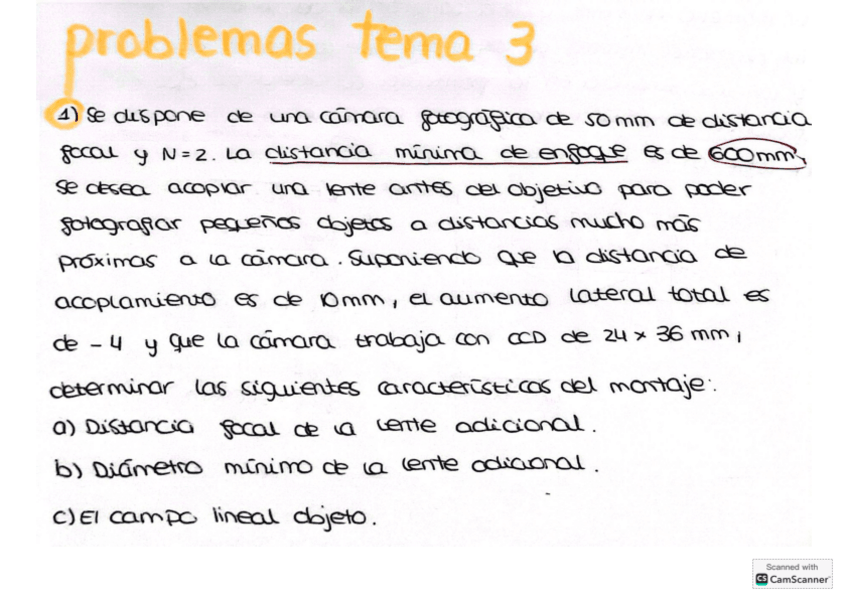 problemas tema 3
1) Se dispone de una cámara fotográfica de 50 mm de distancia
focal y N=2. La distancia mínima de enfoque es de 600mm,
se desea acoplar una lente antes del objetivo para poder
fotografiar pequeños objetos a distancias mucho más
próximas a la cámara. Suponiendo que la distancia de
acoplamiento es de 10mm, el aumento lateral total es
de -4 y que la cámara trabaja con CCD de 24 x 36 mm,
determinar las siguientes características del montaje:
a) Distancia focal de la lente adicional.
b) Diámetro mínimo de la lente adicional.
c) El campo lineal objeto.
Scanned with
CS CamScanner